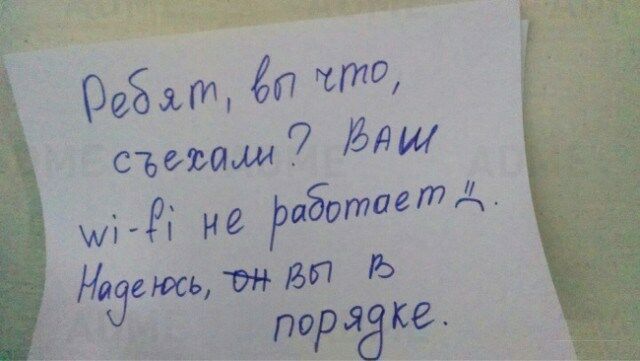 Ребят, вы что,
съехали? ВАШ
wi-fi не работает =(.
Надеюсь, он вы в
порядке.